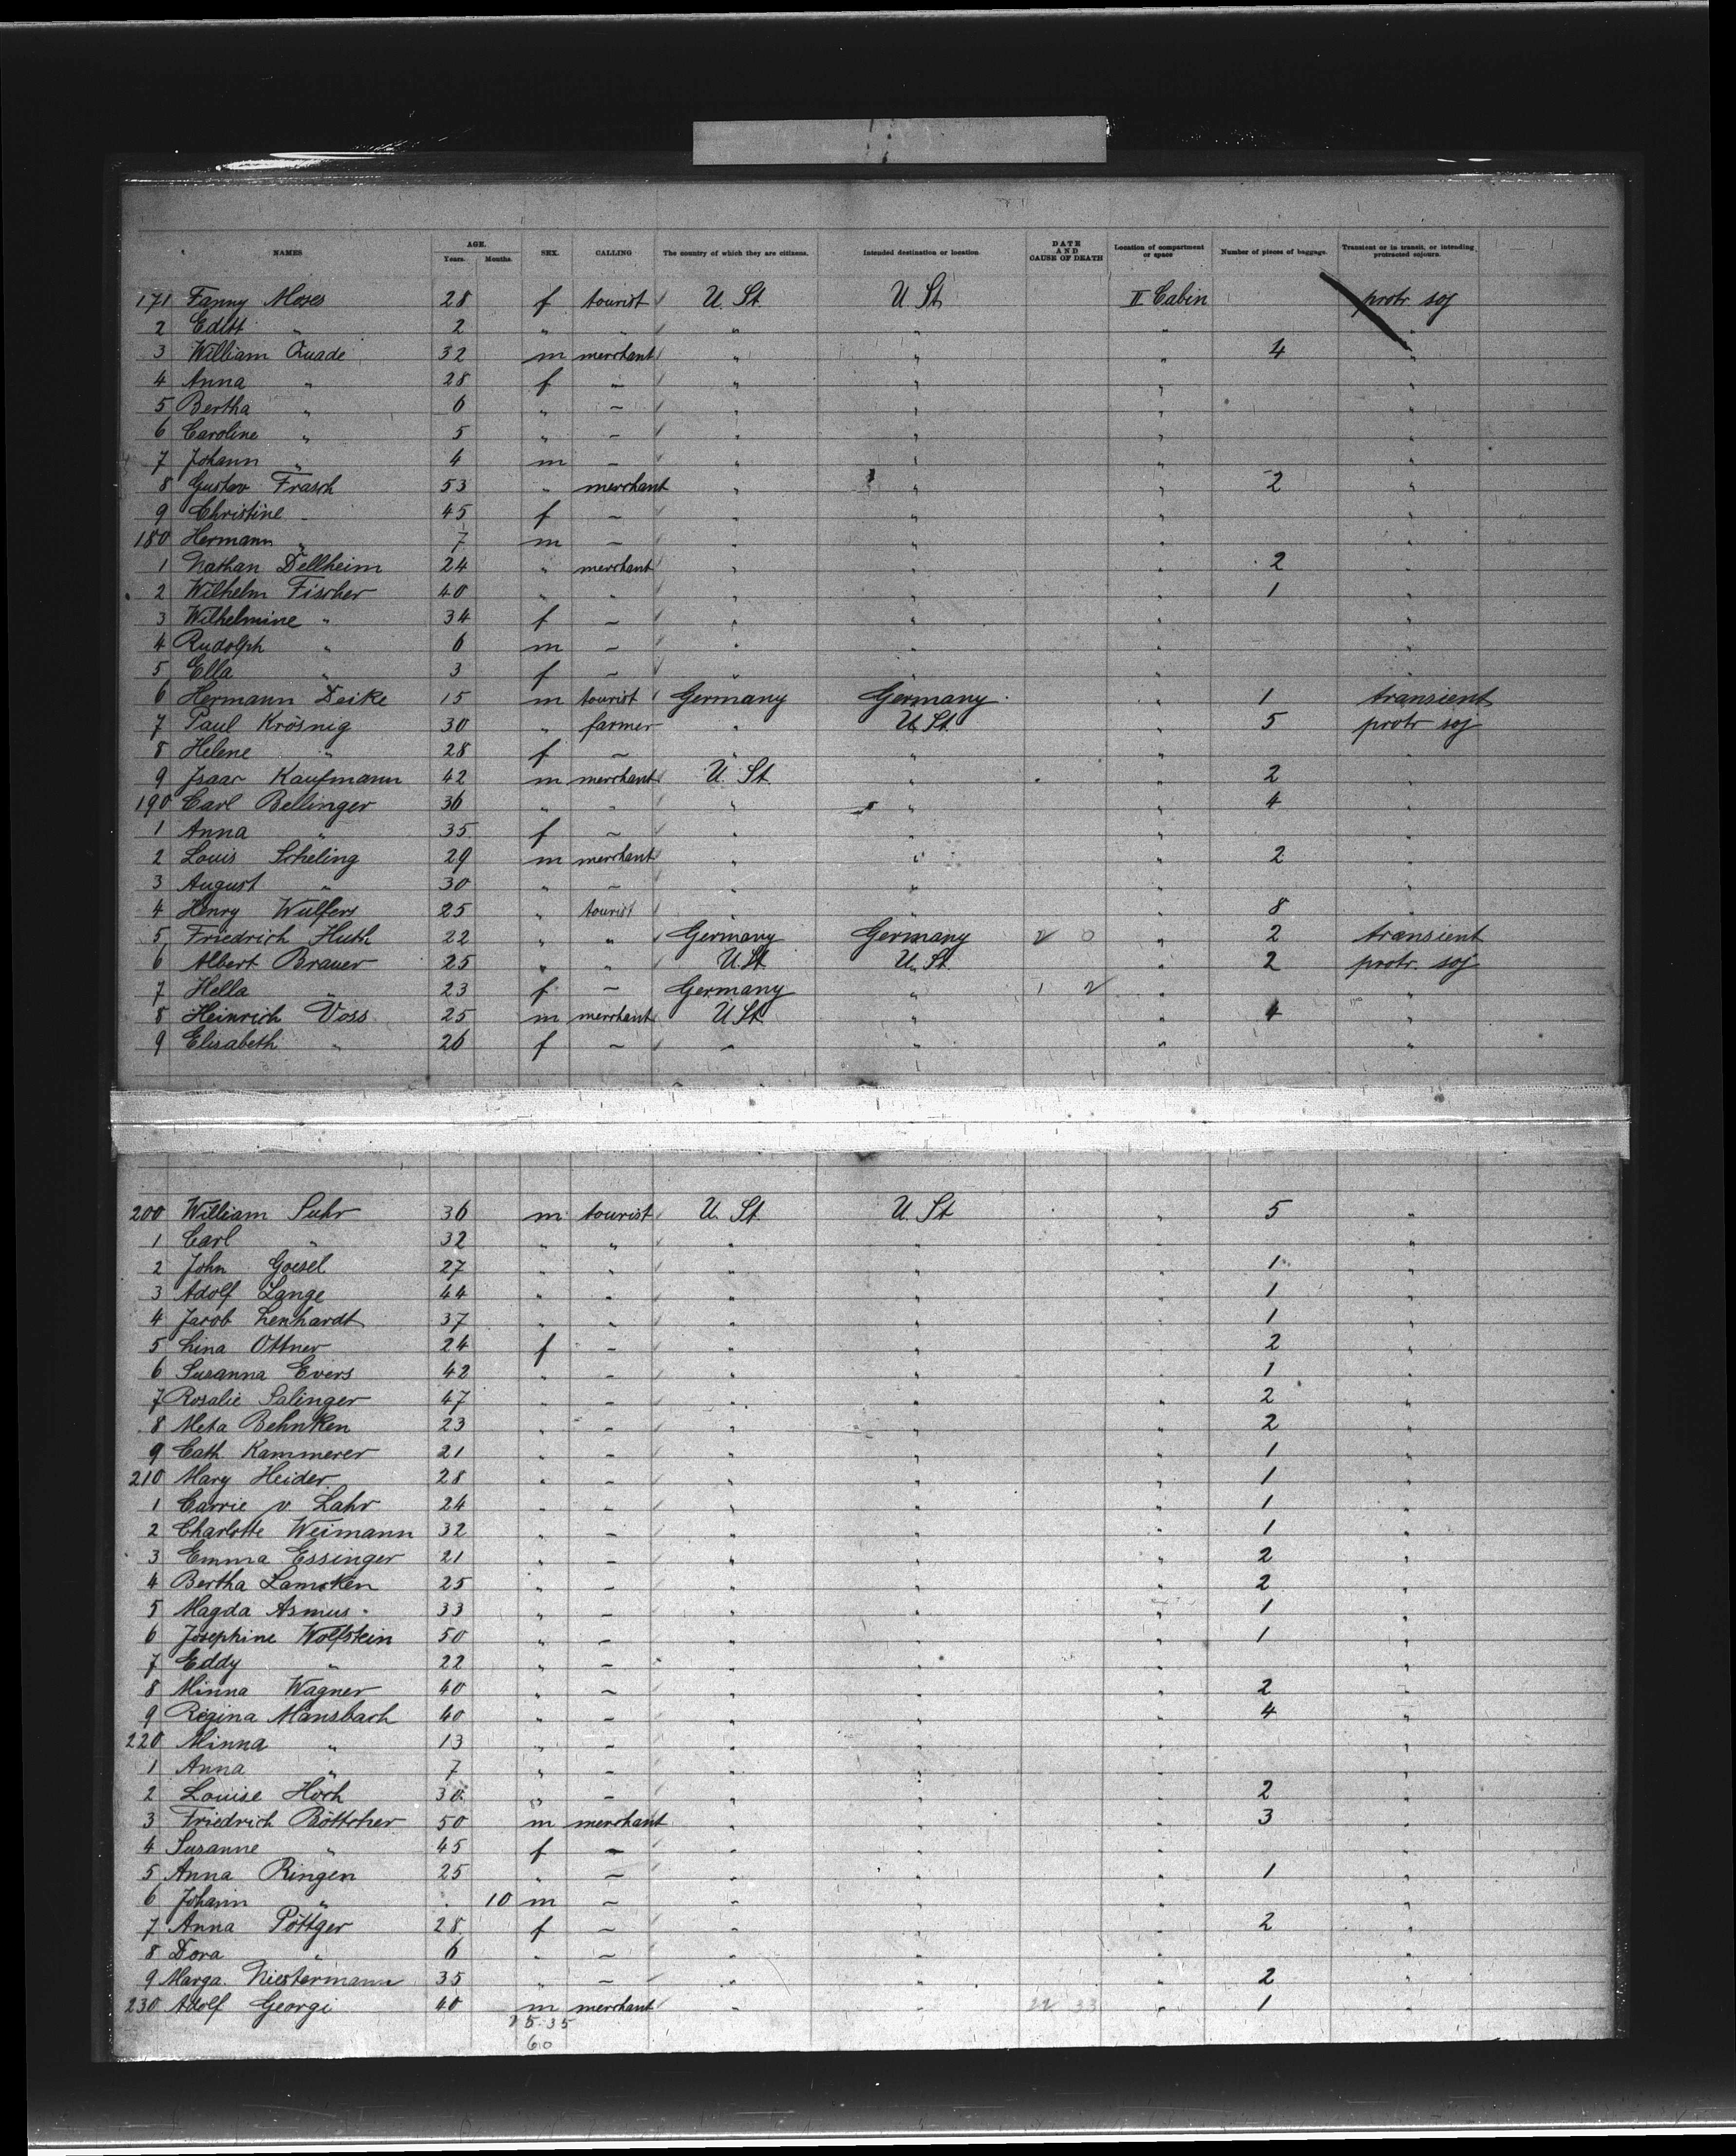 NAMES AGE. Years. Months. SEX. CALLING The country of which they are citizens. Intended destination or location DATE AND CAUSE OF DEATH Location of compartment or space Number of pieces of baggage. Transient or in transit, or intending protracted sojourn.
171 Fanny Moses 28 f tourist U. St. U St. II Cabin protr soj
2 Editt " 2 " " " " " "
3 William Quade 32 m merchant " " " 4 "
4 Anna " 28 f – " " " "
5 Bertha " 6 " – " " " "
6 Caroline " 5 " – " " " "
7 Johann " 4 m – " " " "
8 Gustav Frasch 53 " merchant " " " 2 "
9 Christine " 45 f – " " " "
180 Hermann " 7 m – " " " "
1 Nathan Dellheim 24 " merchant " " " 2 "
2 Wilhelm Fischer 40 " " " " " 1 "
3 Wilhelmine " 34 f – " " " "
4 Rudolph " 6 m – " " " "
5 Ella " 3 f – " " " "
6 Hermann Deike 15 m tourist Germany Germany " 1 transient
7 Paul Krösnig 30 " farmer " U. St. " 5 protr soj
8 Helene " 28 f – " " " "
9 Isaac Kaufmann 42 m merchant U. St. " " 2 "
190 Carl Bellinger 36 " " " " " 4 "
1 Anna " 35 f – " " " "
2 Louis Scheling 29 m merchant " " " 2 "
3 August " 30 " – " " " "
4 Henry Wulfers 25 " tourist " " " 8 "
5 Friedrich Huth 22 " " Germany Germany " 2 transient
6 Albert Brauer 25 " " U. St. U. St. " 2 protr. soj
7 Hella " 23 f – Germany " " "
8 Heinrich Voss 25 m merchant U St. " " 4 "
9 Elisabeth " 26 f – " " " "
200 William Suhr 36 m tourist U. St. U. St. " 5 "
1 Carl " 32 " " " " " "
2 John Goesel 27 " " " " " 1 "
3 Adolf Lange 44 " " " " " 1 "
4 Jacob Lenhardt 37 " " " " " 1 "
5 Lina Ottner 24 f – " " " 2 "
6 Susanna Evers 42 " – " " " 1 "
7 Rosalie Salinger 47 " – " " " 2 "
8 Meta Behnken 23 " – " " " 2 "
9 Cath. Kammerer 21 " – " " " 1 "
210 Mary Heider 28 " – " " " 1 "
1 Carrie v. Lahr 24 " – " " " 1 "
2 Charlotte Weimann 32 " – " " " 1 "
3 Emma Essinger 21 " – " " " 2 "
4 Bertha Lamcken 25 " – " " " 2 "
5 Magda Asmus 33 " – " " " 1 "
6 Josephine Wolfstein 50 " – " " " 1 "
7 Eddy " 22 " – " " " "
8 Minna Wagner 40 " – " " " 2 "
9 Regina Mansbach 40 " – " " " 4 "
220 Minna " 13 " – " " " "
1 Anna " 7 " – " " " "
2 Louise Hoch 30 " – " " " 2 "
3 Friedrich Böttcher 50 m merchant " " " 3 "
4 Susanne " 45 f – " " " "
5 Anna Ringen 25 " – " " " 1 "
6 Johann " 10 m – " " " "
7 Anna Pöttger 28 f – " " " 2 "
8 Dora " 6 " – " " " "
9 Marga. Niestermann 35 " – " " " 2 "
230 Adolf Georgi 40 m merchant " " 22 33 " 1 "
25.35
60